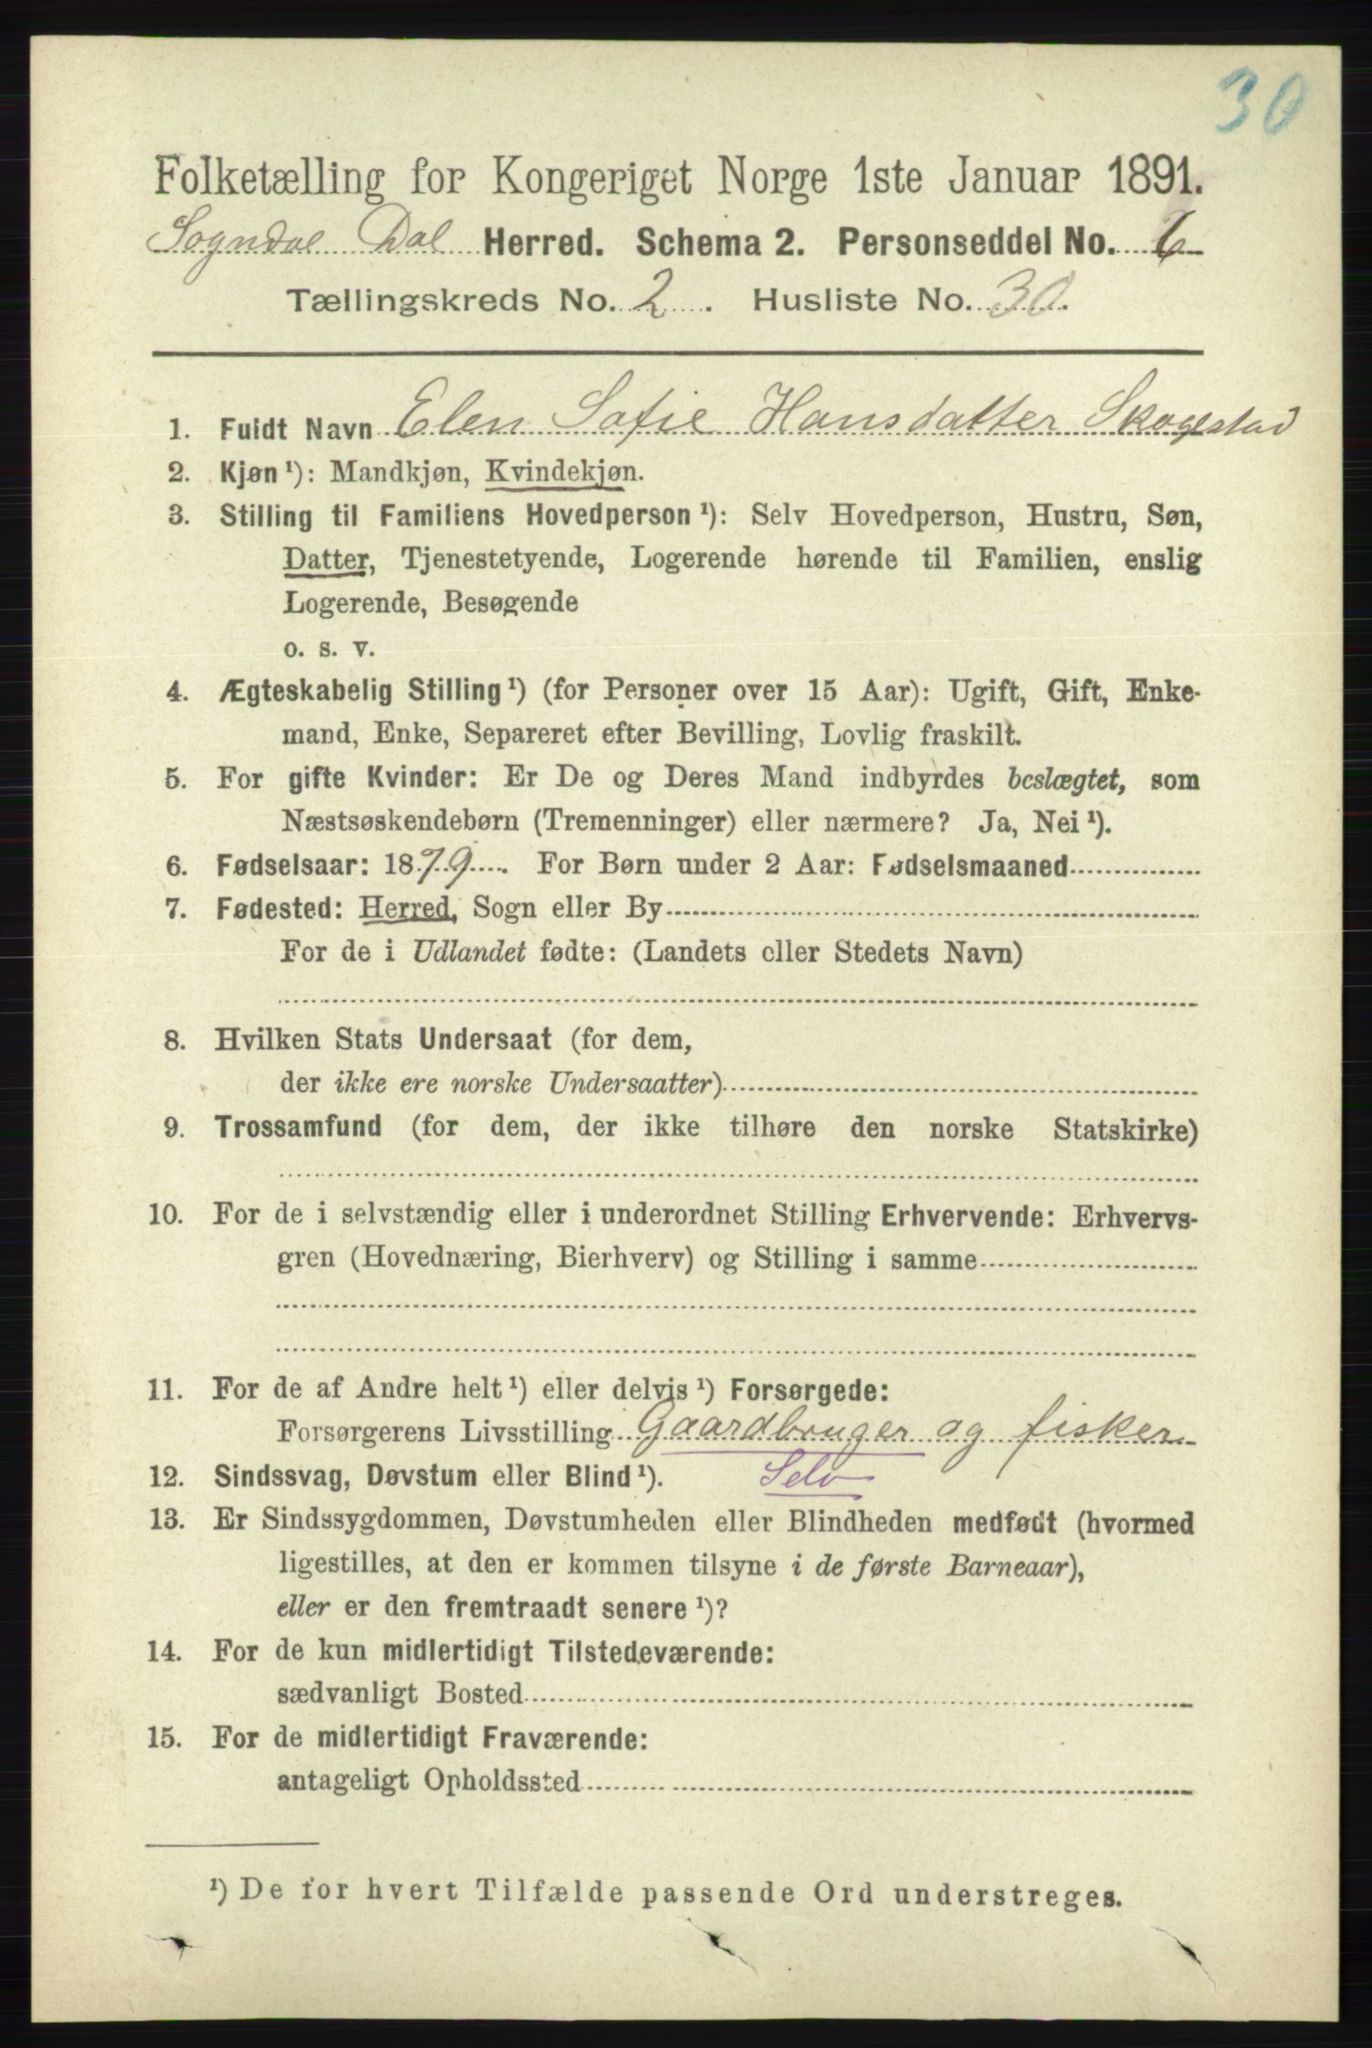 30
Folketælling for Kongeriget Norge 1ste Januar 1891.
Sogndal Dal Herred. Schema 2. Personseddel No. 6
Tællingskreds No. 2. Husliste No. 30.
1. Fuldt Navn Elen Sofie Hansdatter Skogestad
2. Kjøn ¹): Mandkjøn, Kvindekjøn.
3. Stilling til Familiens Hovedperson ¹): Selv Hovedperson, Hustru, Søn,
Datter, Tjenestetyende, Logerende hørende til Familien, enslig
Logerende, Besøgende
o. s. v.
4. Ægteskabelig Stilling ¹) (for Personer over 15 Aar): Ugift, Gift, Enke-
mand, Enke, Separeret efter Bevilling, Lovlig fraskilt.
5. For gifte Kvinder: Er De og Deres Mand indbyrdes beslægtet, som
Næstsøskendebørn (Tremenninger) eller nærmere? Ja, Nei ¹).
6. Fødselsaar: 1879. For Børn under 2 Aar: Fødselsmaaned
7. Fødested: Herred, Sogn eller By
For de i Udlandet fødte: (Landets eller Stedets Navn)
8. Hvilken Stats Undersaat (for dem,
der ikke ere norske Undersaatter)
9. Trossamfund (for dem, der ikke tilhøre den norske Statskirke)
10. For de i selvstændig eller i underordnet Stilling Erhvervende: Erhvervs-
gren (Hovednæring, Bierhverv) og Stilling i samme
11. For de af Andre helt ¹) eller delvis ¹) Forsørgede:
Forsørgerens Livsstilling Gaardbruger og fisker
12. Sindssvag, Døvstum eller Blind ¹). Selv
13. Er Sindssygdommen, Døvstumheden eller Blindheden medfødt (hvormed
ligestilles, at den er kommen tilsyne i de første Barneaar),
eller er den fremtraadt senere ¹)?
14. For de kun midlertidigt Tilstedeværende:
sædvanligt Bosted
15. For de midlertidigt Fraværende:
antageligt Opholdssted
¹) De for hvert Tilfælde passende Ord understreges.